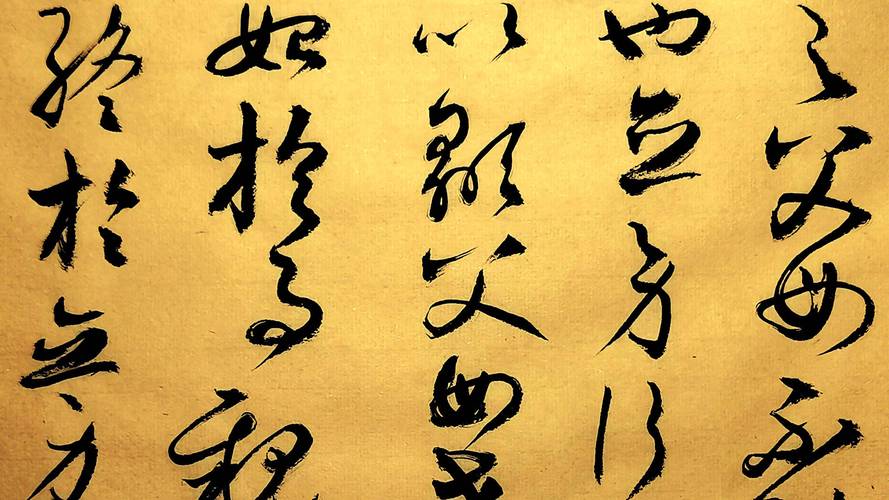 之父母不
也立身行
以顯父母孝
始於事親
終於立身